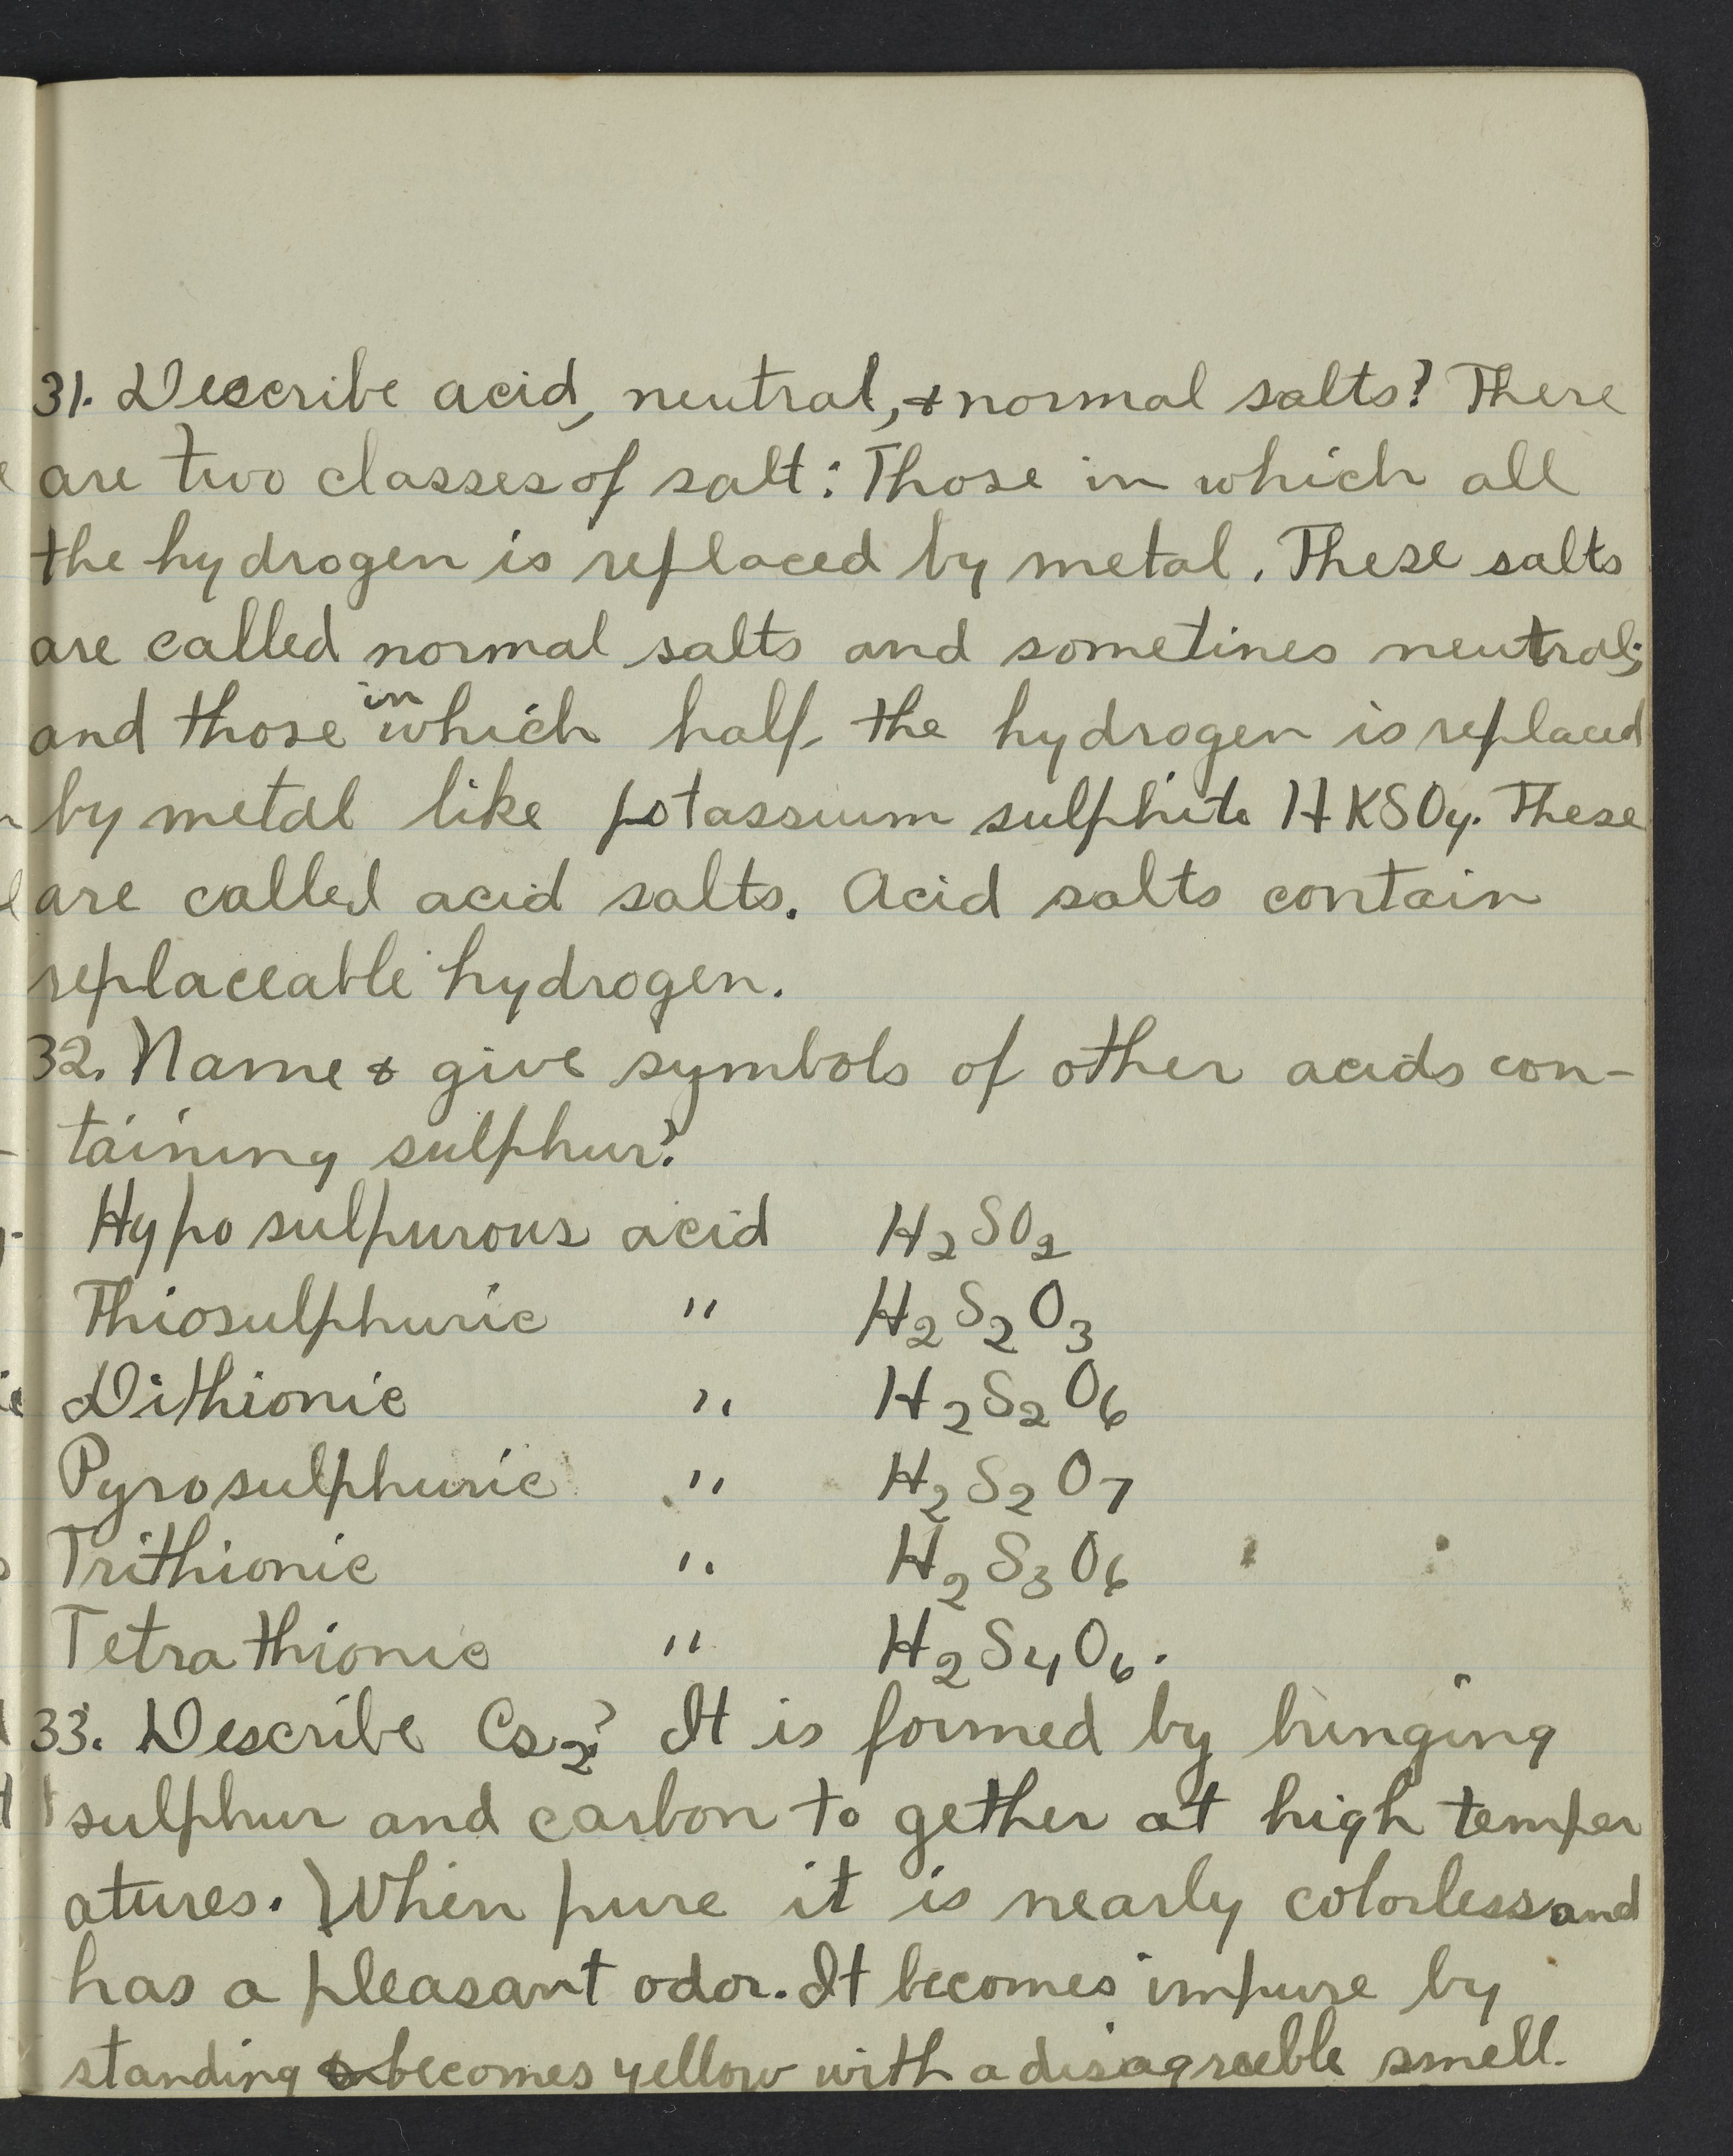 31. Describe acid, neutral, & normal salts? There
are two classes of salt: Those in which all
the hydrogen is replaced by metal. These salts
are called normal salts and sometines neutral;
and those in which half the hydrogen is replaced
by metal like potassium sulphite HKSO4. These
are called acid salts. Acid salts contain
replaceable hydrogen.
32. Name & give symbols of other acids con-
taining sulphur?
Hypo sulpurous acid H2SO2
Thiosulphuric " H2S2O3
Dithionic " H2S2O6
Pyrosulphuric " H2S2O7
Trithionic " H2S3O6
Tetrathionic " H2S4O6.
33. Describe Cs2? It is formed by bringing
sulphur and carbon to gether at high temper
atures. When pure it is nearly colorless and
has a pleasant odor. It becomes impure by
standing becomes yellow with a disagreeble smell.